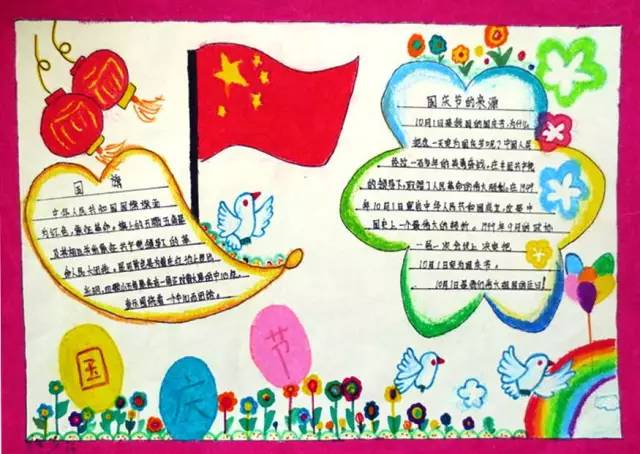 国旗
中华人民共和国国旗旗面
为红色,象征革命。旗上的五颗五角星
及其相互关系象征共产党领导下的革
命人民大团结。星用黄色是为着在红地上显出
光明,四颗小五角星各有一角正对着大星的中心点,
表示围绕着一个中心而团结。
国庆节的来源
10月1日是我国的国庆节,为什么
把这一天定为国庆节呢?中国人民
经过一百多年的英勇奋战,在中国共产党
的领导下,取得了人民革命的伟大胜利。在1949
年10月1日宣告中华人民共和国成立,这是中
国史上一个最伟大的转折。1949年9月的政协
一届一次会议上决定把
10月1日定为国庆节。
10月1日是我们伟大祖国的生日!
国
庆
节